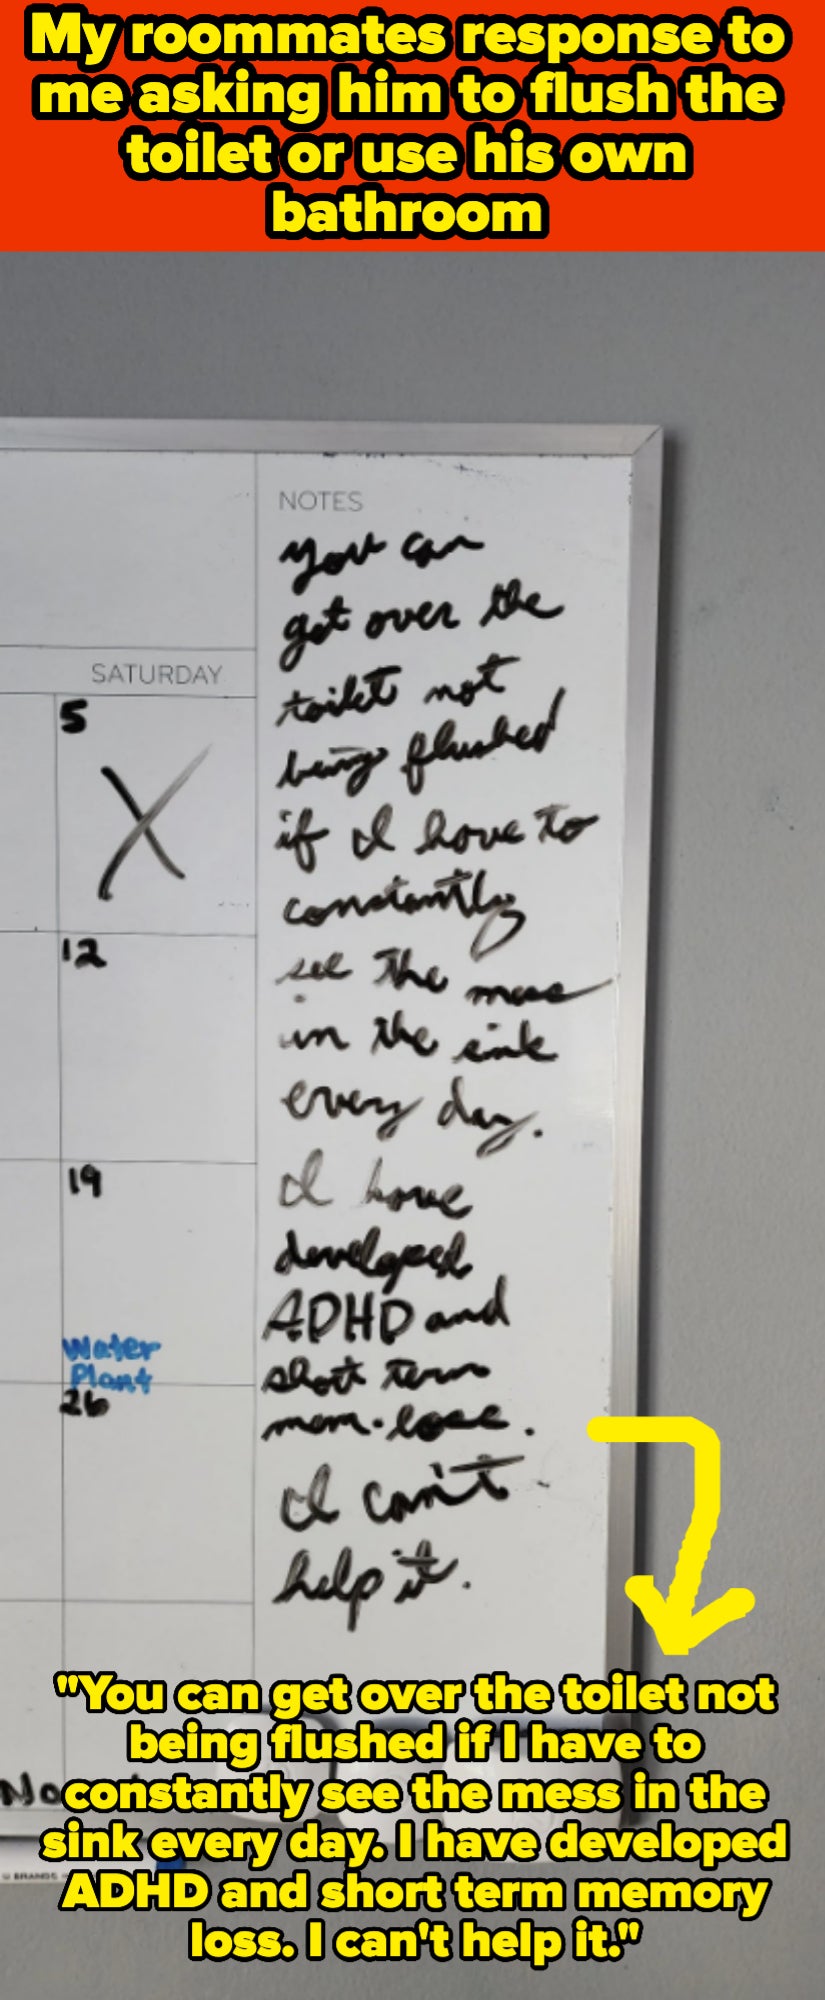 My roommates response to
me asking him to flush the
toilet or use his own
bathroom
NOTES
You can
get over the
toilet not
being flushed
if I have to
constantly
see the mess
in the sink
every day.
I have
developed
ADHD and
short term
mem. loss.
I can't
help it.
SATURDAY
5
X
12
19
Water
Plant
26
"You can get over the toilet not
being flushed if I have to
constantly see the mess in the
sink every day. I have developed
ADHD and short term memory
loss. I can't help it."
No
BRANDS